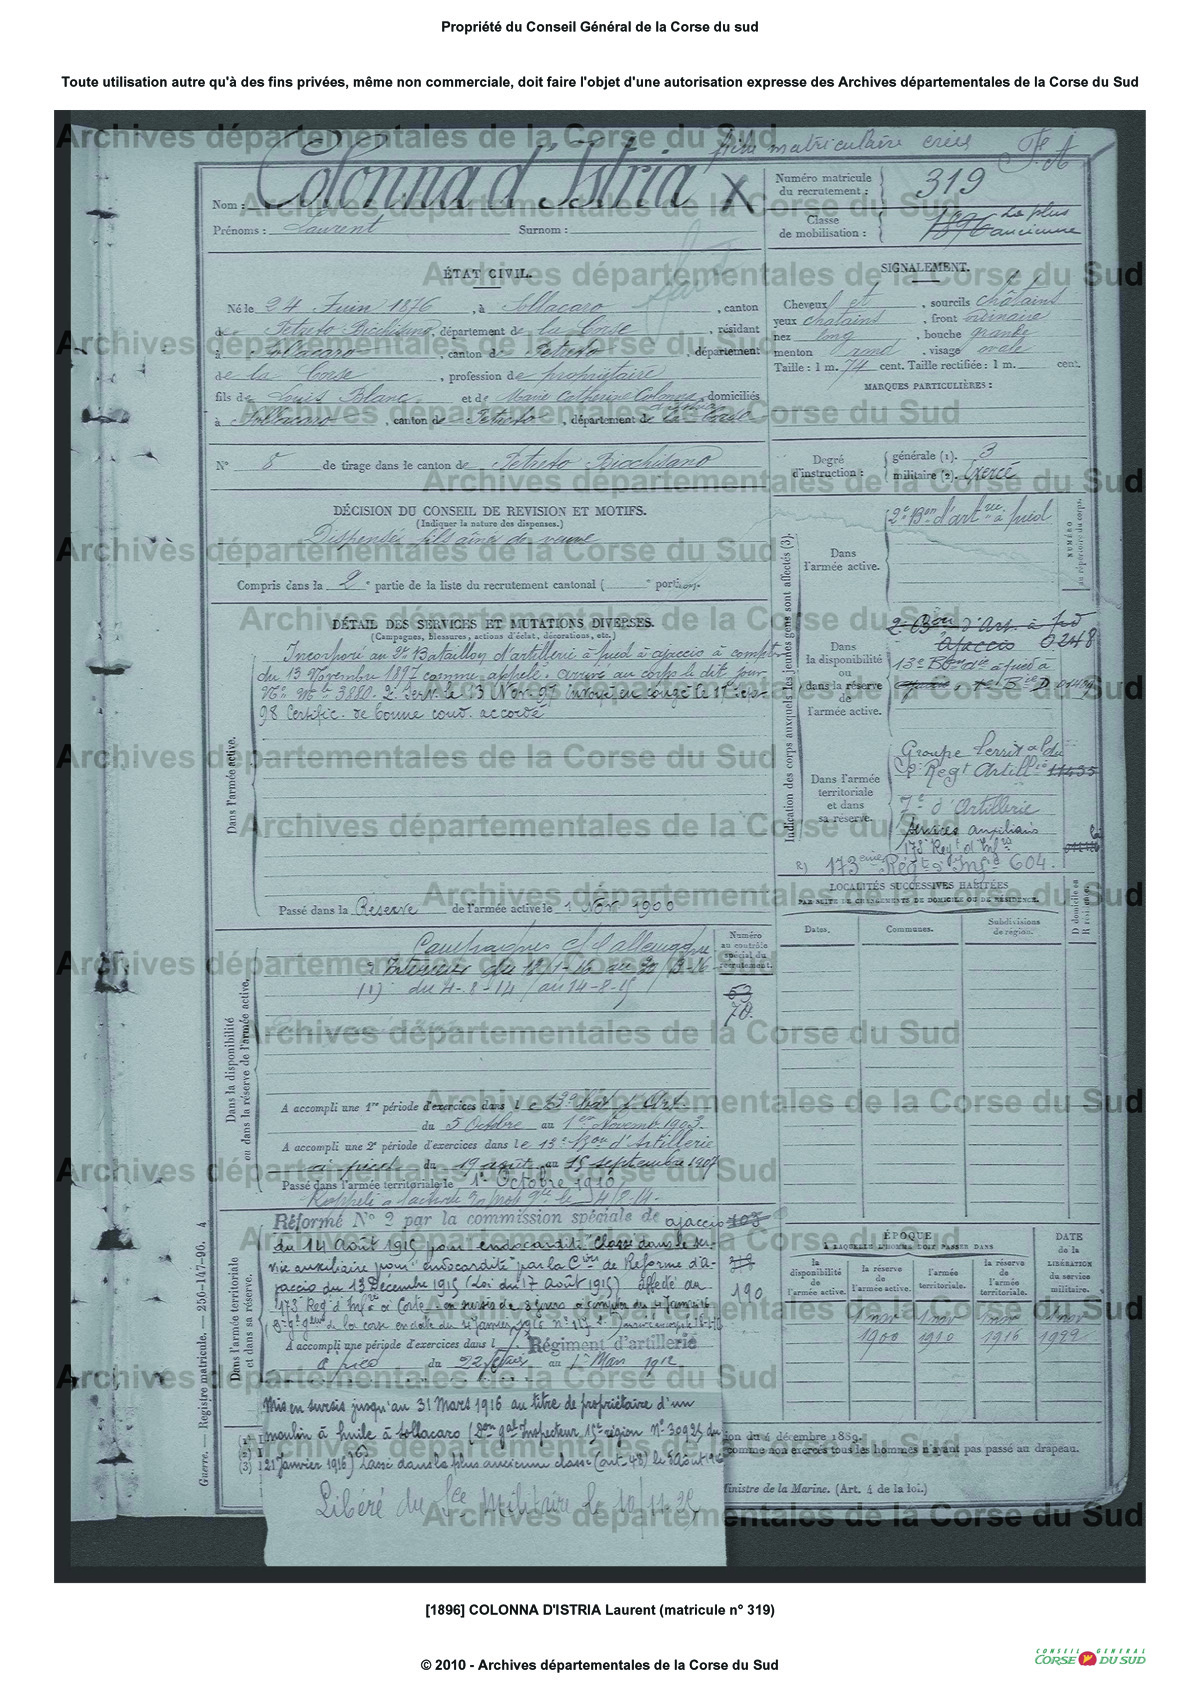 Propriété du Conseil Général de la Corse du sud
Toute utilisation autre qu'à des fins privées, même non commerciale, doit faire l'objet d'une autorisation expresse des Archives départementales de la Corse du Sud
Archives départementales de la Corse du Sud
fiche matriculaire créée F. A
Nom : Colonna d'Istria X
Numéro matricule du recrutement : 319
Prénoms : Laurent Surnom :
Classe de mobilisation : 1896 La plus ancienne
ÉTAT CIVIL.
Né le 24 Juin 1876, à Sollacaro, canton
de Petreto Bicchisano, département de la Corse, résidant
à Sollacaro, canton de Petreto, département
de la Corse, profession de propriétaire
fils de Louis Blanc et de Marie Catherine Colonna d'Istria domiciliés
à Sollacaro, canton de Petreto, département de la Corse
SIGNALEMENT.
Cheveux et, sourcils châtains
yeux chatains, front ordinaire
nez long, bouche grande
menton rond, visage ovale
Taille : 1 m. 74 cent. Taille rectifiée : 1 m. cent.
MARQUES PARTICULIÈRES :
N° 8 de tirage dans le canton de Petreto Bicchisano
Degré d'instruction : générale (1). 3
militaire (2). Exercé
DÉCISION DU CONSEIL DE REVISION ET MOTIFS.
(Indiquer la nature des dispenses.)
Dispensé fils aîné de veuve
Compris dans la 2e partie de la liste du recrutement cantonal ( e portion).
DÉTAIL DES SERVICES ET MUTATIONS DIVERSES.
(Campagnes, blessures, actions d'éclat, décorations, etc.)
Dans l'armée active.
Incorporé au 2e Bataillon d'artillerie à pied à ajaccio à compter
du 13 Novembre 1897 comme appelé. arrivé au corps le dit jour
No Mle 3880. 2e Servt le 13 Nov. 97 envoyé en congé le
98 Certific. de bonne cond. accordé
Passé dans la Réserve de l'armée active le 1 Nov 1900
Indication des corps auxquels les jeunes gens sont affectés (3).
NUMÉRO au répertoire du corps.
Dans l'armée active.
2e Bon d'artrie à pied
Dans la disponibilité ou dans la réserve de l'armée active.
2e Bon d'Art. à pied
ajaccio 0248
13e Bon d'Art à pied à
Dans l'armée territoriale et dans sa réserve.
Groupe territal du
Regt Artillie 11435
7e d'Artillerie
services auxiliaires
173e Regt d'Infie
173ème Régt d'Infie 604.
LOCALITÉS SUCCESSIVES HABITÉES
PAR SUITE DE CHANGEMENTS DE DOMICILE OU DE RÉSIDENCE.
Dates. Communes. Subdivisions de région. D domicile ou R résidence.
Dans la disponibilité ou dans la réserve de l'armée active.
Numéro au contrôle spécial du recrutement.
Campagnes c/ l'allemagne
Intérieur du
(1) du 4-8-14 au 14-8-15
53
70
A accompli une 1re période d'exercices dans le 13e Bat d'Art.
du 5 Octobre au 1er Novemb 1903.
A accompli une 2e période d'exercices dans le 13e Bon d'Artillerie
à pied du 19 août au 15 septembre 1907
Passé dans l'armée territoriale le 1er Octobre 1910
Rappelé à l'activité le 4/8-14.
Dans l'armée territoriale et dans sa réserve.
Réformé N° 2 par la commission spéciale de ajaccio 103
du 14 Août 1915 pour endocardite Classé dans le ser-
vice auxiliaire pour "endocardite" par la Con de Réforme d'a- 319
jaccio du 13 Décembre 1915 (Loi du 17 Août 1915) affecté au 190
173e Régt d'Infie à Corte
A accompli une période d'exercices dans le Régiment d'artillerie
à pied du 22 février au 1er Mars 1912
Mis en sursis jusqu'au 31 Mars 1916 au titre de propriétaire d'un
moulin à huile à Sollacaro (Don Gal Inspecteur 15e région N° 30925 du
21 Janvier 1916) Classé dans la plus ancienne classe (art-48) le
Libéré du Sce Militaire le 10/11.25
ÉPOQUE
À LAQUELLE L'HOMME DOIT PASSER DANS
la disponibilité de l'armée active. la réserve de l'armée active. l'armée territoriale. la réserve de l'armée territoriale. DATE de la LIBÉRATION du service militaire.
1 nov 1900 1 nov 1910 1 nov 1916 1 nov 1922
Guerre. — Registre matricule. — 256-147-96. 4
(1)
(2)
(3)
ion du 4 décembre 1889.
comme non exercés tous les hommes n'ayant pas passé au drapeau.
Ministre de la Marine. (Art. 4 de la loi.)
[1896] COLONNA D'ISTRIA Laurent (matricule n° 319)
CONSEIL GENERAL
CORSE DU SUD
© 2010 - Archives départementales de la Corse du Sud